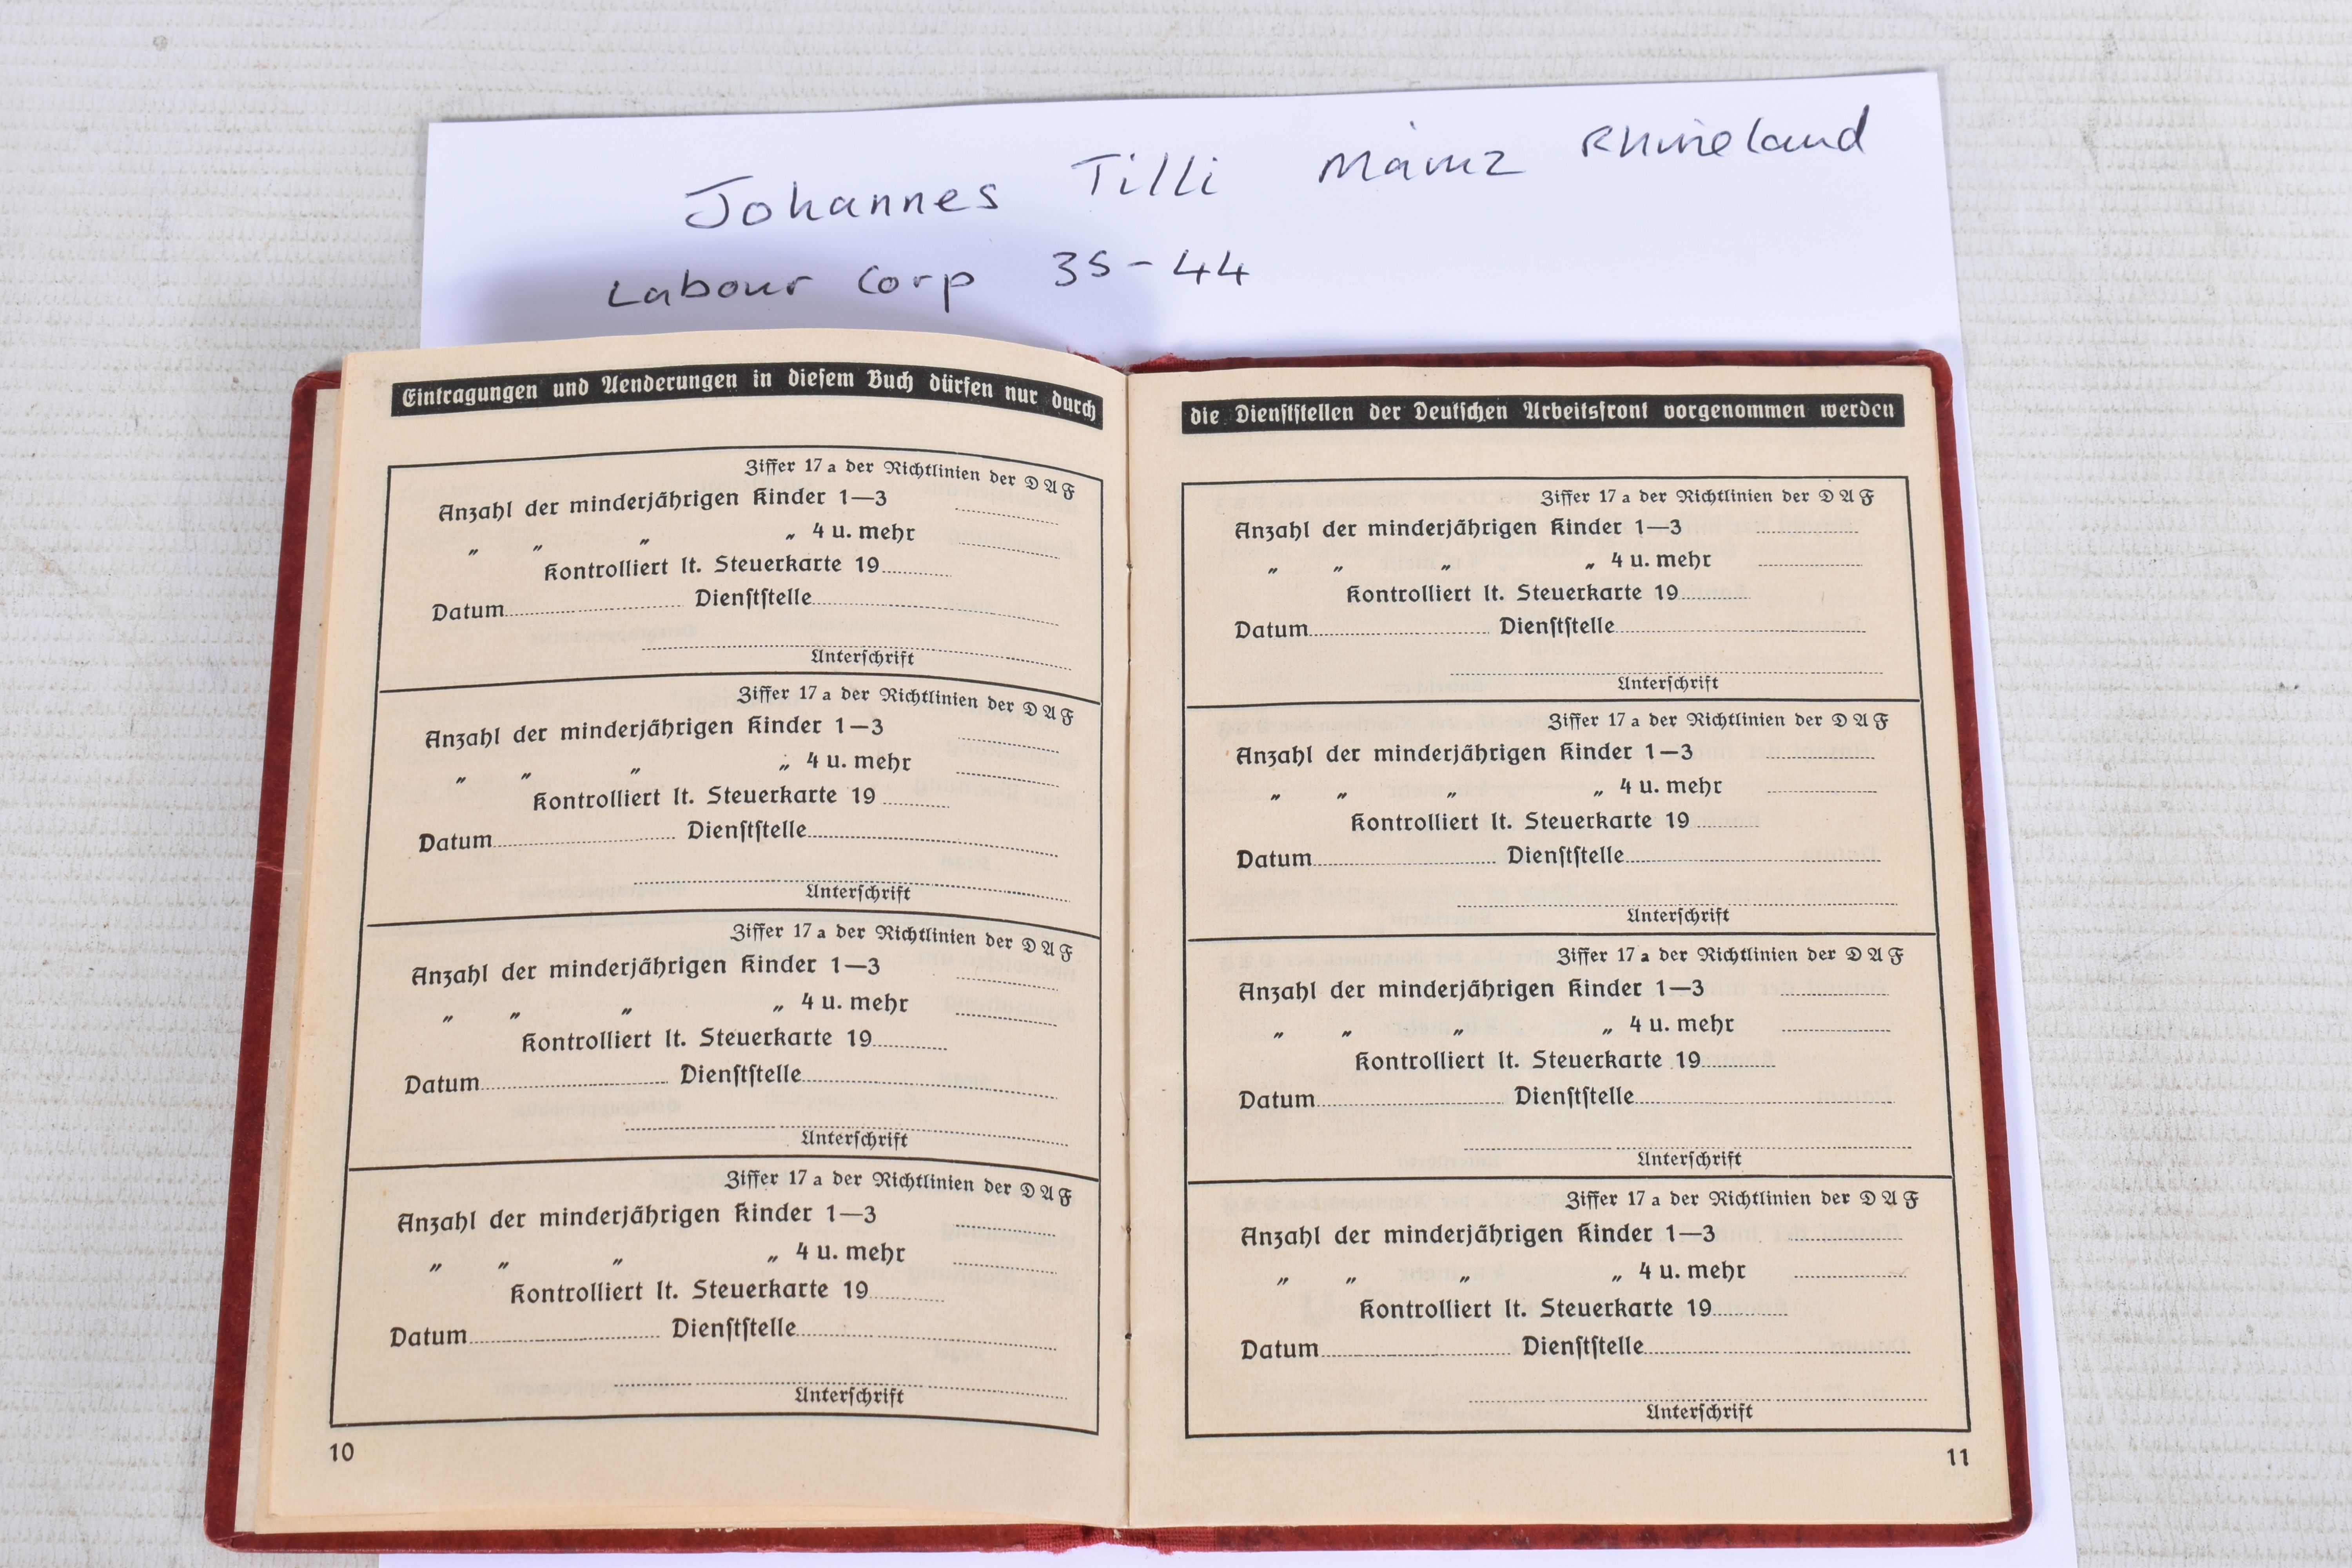 Johannes Tilli Mainz Rhineland
Labour Corp 35-44
Eintragungen und Aenderungen in diesem Buch dürfen nur durch
Ziffer 17 a der Richtlinien der D A F
Anzahl der minderjährigen Kinder 1—3
„ „ „ „ 4 u. mehr
Kontrolliert lt. Steuerkarte 19
Datum Dienststelle
Unterschrift
Ziffer 17 a der Richtlinien der D A F
Anzahl der minderjährigen Kinder 1—3
„ „ „ „ 4 u. mehr
Kontrolliert lt. Steuerkarte 19
Datum Dienststelle
Unterschrift
Ziffer 17 a der Richtlinien der D A F
Anzahl der minderjährigen Kinder 1—3
„ „ „ „ 4 u. mehr
Kontrolliert lt. Steuerkarte 19
Datum Dienststelle
Unterschrift
Ziffer 17 a der Richtlinien der D A F
Anzahl der minderjährigen Kinder 1—3
„ „ „ „ 4 u. mehr
Kontrolliert lt. Steuerkarte 19
Datum Dienststelle
Unterschrift
10
die Dienststellen der Deutschen Arbeitsfront vorgenommen werden
Ziffer 17 a der Richtlinien der D A F
Anzahl der minderjährigen Kinder 1—3
„ „ „ „ 4 u. mehr
Kontrolliert lt. Steuerkarte 19
Datum Dienststelle
Unterschrift
Ziffer 17 a der Richtlinien der D A F
Anzahl der minderjährigen Kinder 1—3
„ „ „ „ 4 u. mehr
Kontrolliert lt. Steuerkarte 19
Datum Dienststelle
Unterschrift
Ziffer 17 a der Richtlinien der D A F
Anzahl der minderjährigen Kinder 1—3
„ „ „ „ 4 u. mehr
Kontrolliert lt. Steuerkarte 19
Datum Dienststelle
Unterschrift
Ziffer 17 a der Richtlinien der D A F
Anzahl der minderjährigen Kinder 1—3
„ „ „ „ 4 u. mehr
Kontrolliert lt. Steuerkarte 19
Datum Dienststelle
Unterschrift
11